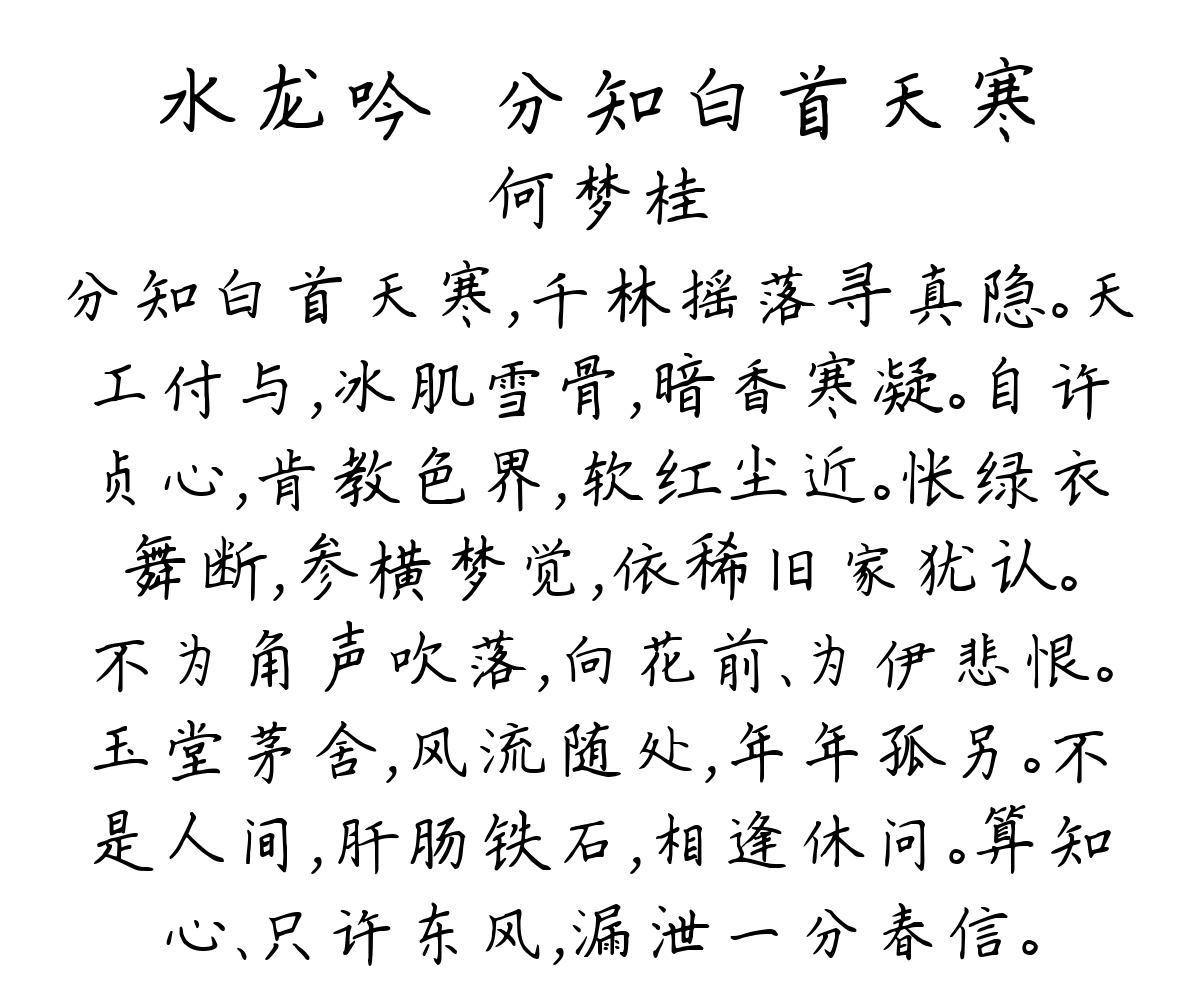 水龙吟 分知白首天寒
何梦桂
分知白首天寒,千林摇落寻真隐。天
工付与,冰肌雪骨,暗香寒凝。自许
贞心,肯教色界,软红尘近。怅绿衣
舞断,参横梦觉,依稀旧家犹认。
不为角声吹落,向花前、为伊悲恨。
玉堂茅舍,风流随处,年年孤另。不
是人间,肝肠铁石,相逢休问。算知
心、只许东风,漏泄一分春信。